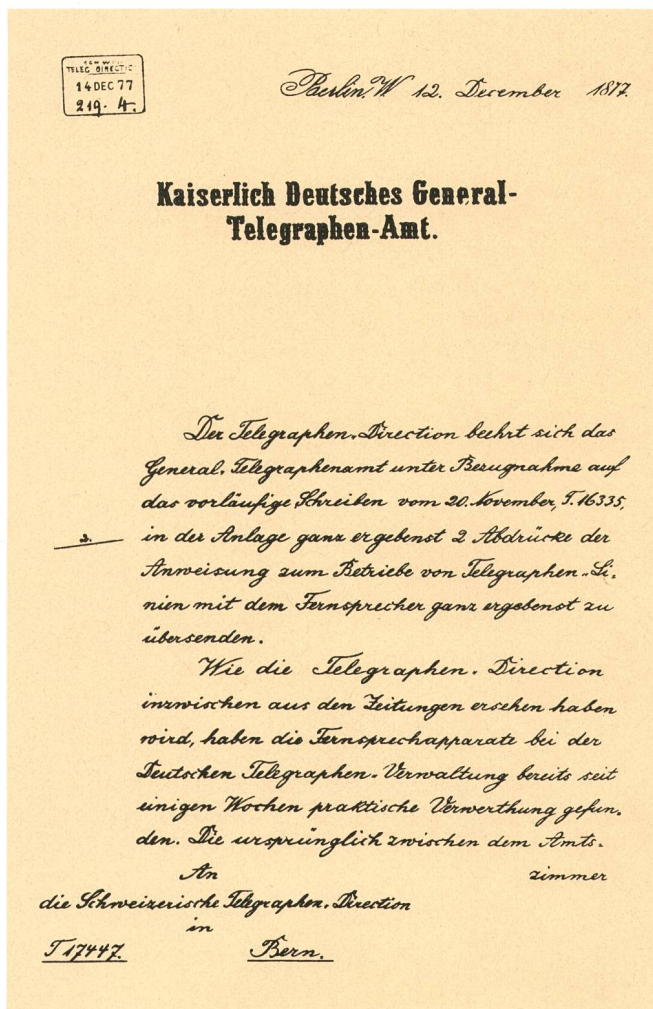 TELEG DIRECTIO
14 DEC 77
219. 4.
Berlin, W 12. December 1877.
Kaiserlich Deutsches General-
Telegraphen-Amt.
Der Telegraphen-Direction beehrt sich das
General-Telegraphenamt unter Bezugnahme auf
das vorläufige Schreiben vom 20. November, T. 16335,
2.
in der Anlage ganz ergebenst 2 Abdrücke der
Anweisung zum Betriebe von Telegraphen-Li-
nien mit dem Fernsprecher ganz ergebenst zu
übersenden.
Wie die Telegraphen-Direction
inzwischen aus den Zeitungen ersehen haben
wird, haben die Fernsprechapparate bei der
Deutschen Telegraphen-Verwaltung bereits seit
einigen Wochen praktische Verwerthung gefun-
den. Die ursprünglich zwischen dem Amts-
zimmer
An
die Schweizerische Telegraphen-Direction
in
T 17447. Bern.